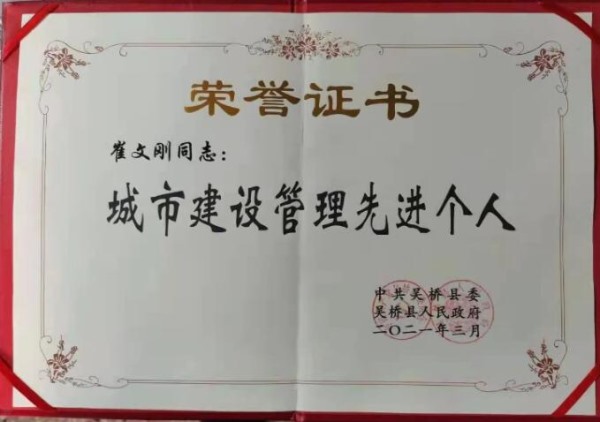 荣誉证书
崔文刚同志：
城市建设管理先进个人
中共吴桥县委
吴桥县人民政府
二〇二一年三月